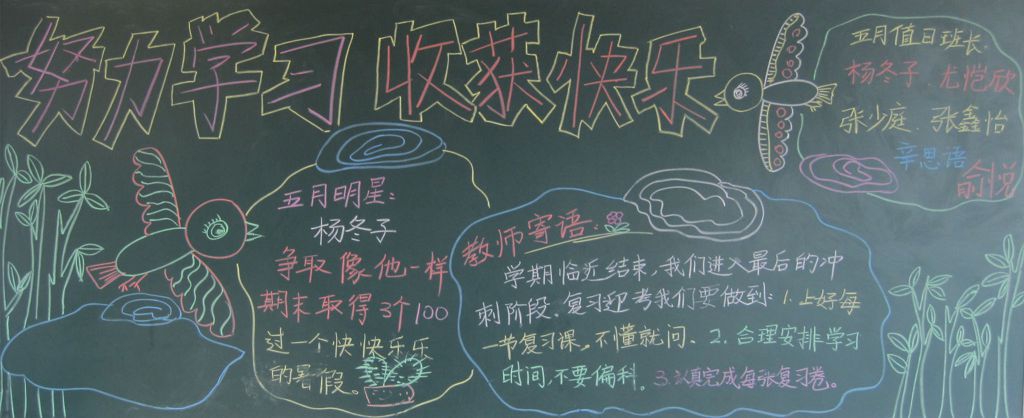 努力学习 收获快乐
五月值日班长:
杨冬子、尤恺欣
张少庭、张鑫怡
辛思语
俞悦
五月明星:
杨冬子
争取像他一样
期末取得3个100
过一个快快乐乐
的暑假。
教师寄语:
学期临近结束,我们进入最后的冲
刺阶段.复习迎考我们要做到:1.上好每
一节复习课。不懂就问、2.合理安排学习
时间,不要偏科。3.认真完成每张复习卷。